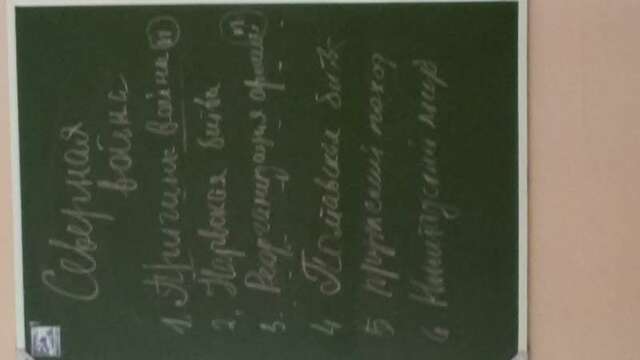 Северная
война
1. Причины войны п
2. Нарвская битва
3. Реорганизация армии п
4 Полтавская битв
5 Прутский поход
6 Ништадский мир